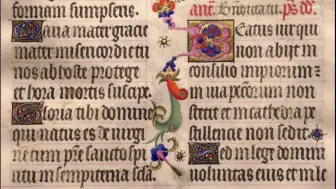 formam sumpseris.
Maria mater gracie
mater misericordie tu
nos ab hoste protege
et hora mortis suscipe.
Gloria tibi domine
qui natus es de uirgi
ne cum pre sancto spi
ritu in sempiterna scla
Beatus uir qui
non abijt in
consilio impiorum et in
uia peccorum non
stetit et in cathedra pe
stilencie non sedit.
Sed in lege domini
uoluntas eius et in le